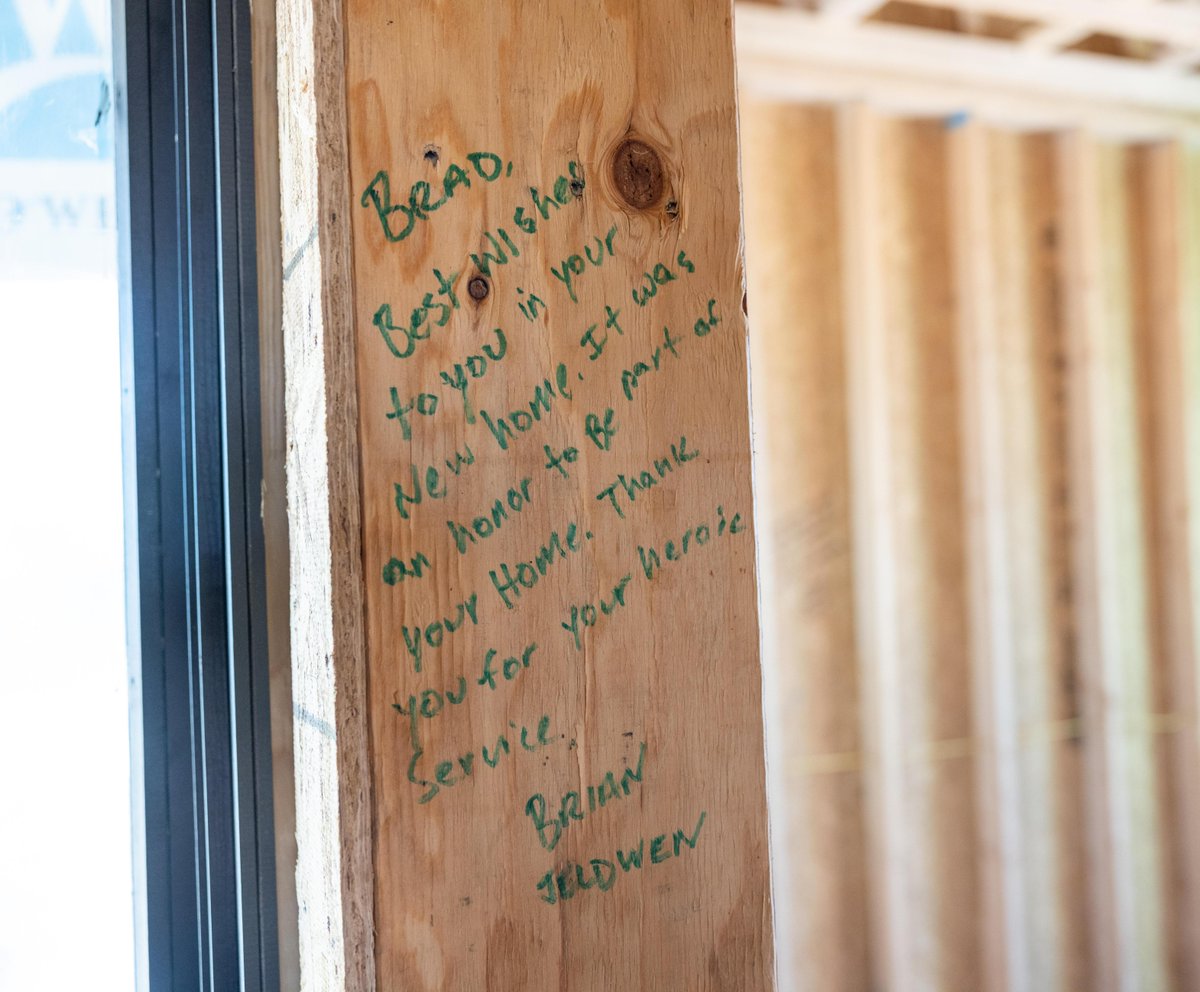 BRAD,
Best wishes
to you in your
New home. It was
an honor to Be part of
your Home. Thank
you for your heroic
service.
BRIAN
JELDWEN